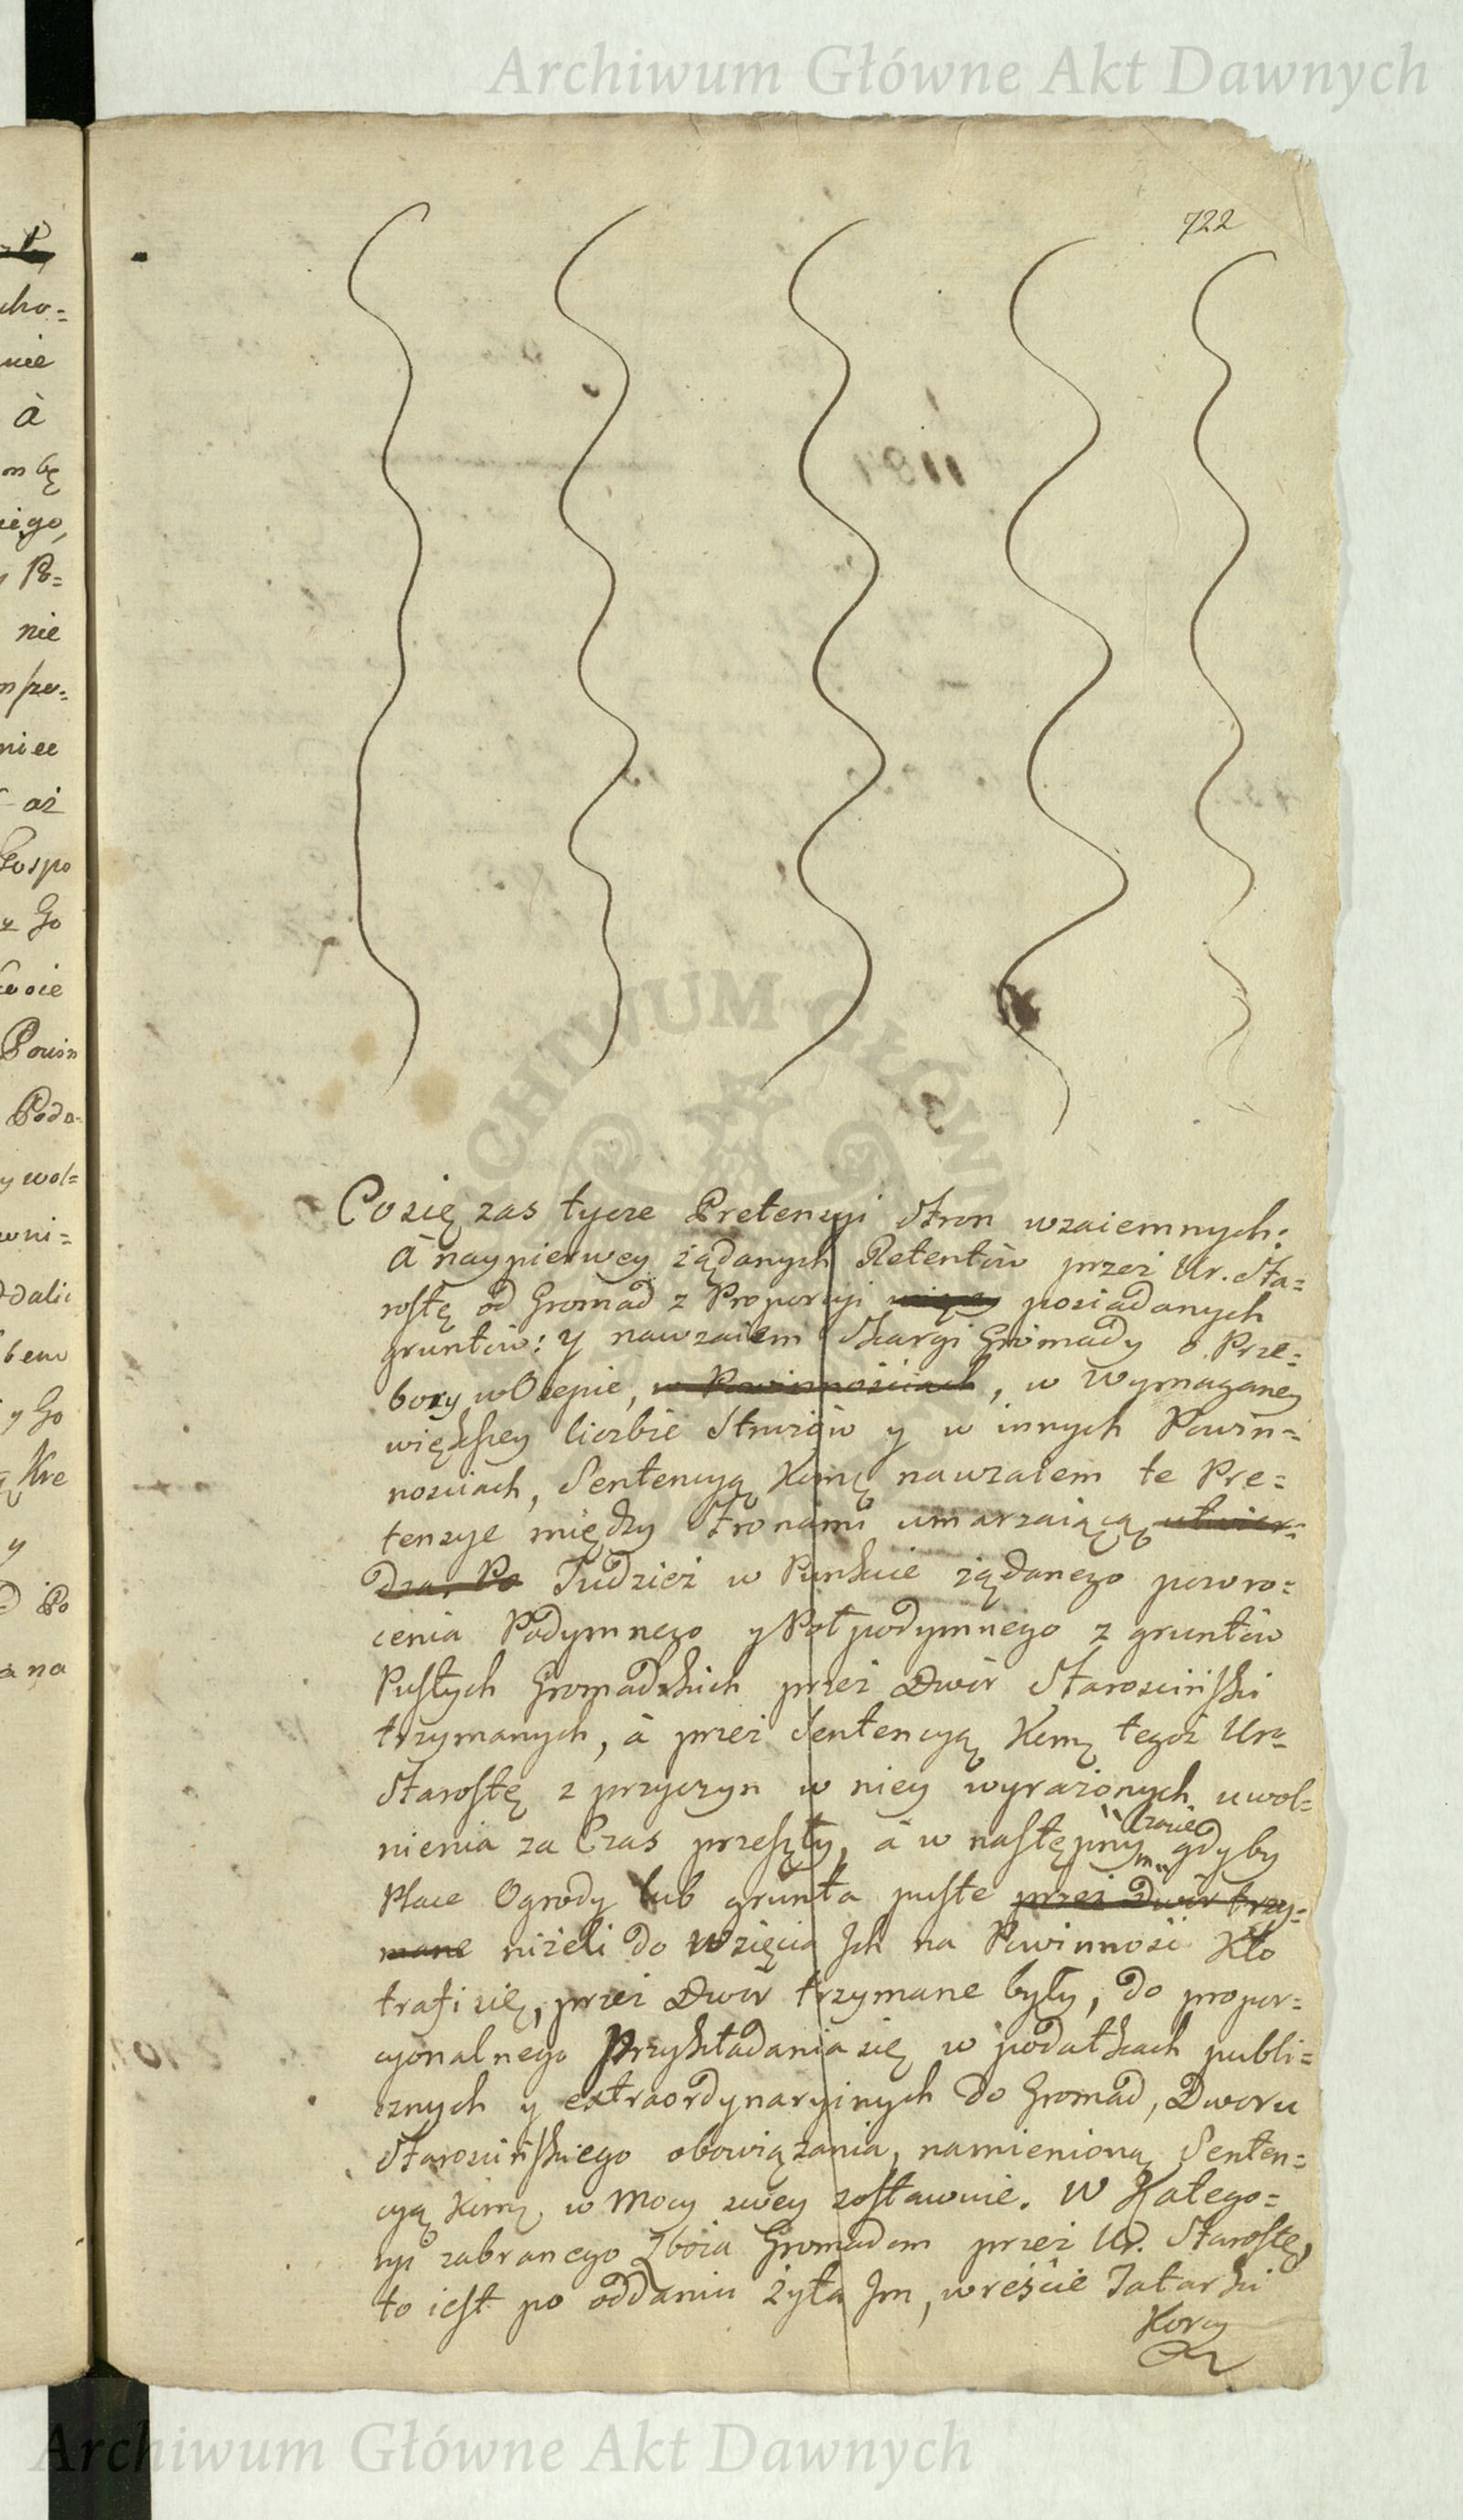 Archiwum Główne Akt Dawnych
722
Co się zas tycze Pretensyi Stron wzaiemnych:
à naypierwey żądanych Retentów przez Ur. Sta=
rostę od Gromad z Proporcyi posiadanych
gruntów: y nawzaiem Skargi Gromady o Prze=
bory w Osepie, w Powinnościach, w Wymaganey
większey liczbie Stróżów y w innych Powin=
nosciach, Sentencyą Kmną nawzaiem te Pre=
tensye między Stronami umarzaiącą utwier=
dza, Po Tudzież w Punkcie żądanego powro=
cenia Podymnego y Połpodymnego z gruntów
Pustych Gromadzkich przez Dwór Starosciński
trzymanych, à przez Sentencyą Kmną tegoż Ur.
Starostę z przyczyn w niey wyrażonych uwol=
nienia za Czas przeszły, à w następnym Czasie gdyby
Place Ogrody lub grunta puste przez Dwór trzy=
mane niżeli do Wzięcia Ich na Powinność Kto
trafi się, przez Dwór trzymane były, do propor=
cyonalnego Przykładania się w podatkach publi=
cznych y extraordynaryinych do Gromad, Dworu
Starościńskiego obowiązania, namienioną Senten=
cyą Kmną w Mocy swey zostawuie. W Katego=
ryi zabranego Zboża Gromadom przez Ur. Starostę,
to iest po oddaniu Żyta Im, wreście Tatarki
Korcy
Archiwum Główne Akt Dawnych